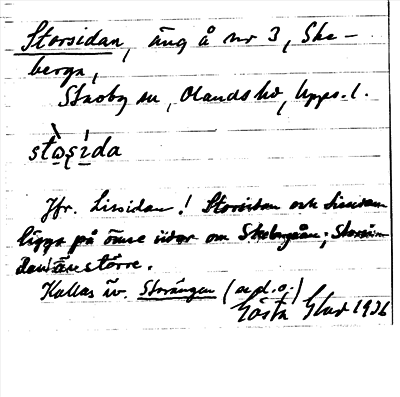 Storsidan, äng å nr 3, Ske-
berga,
Skoby sn, Olands hd, Upps. l.
stɷ̀ṣída
Jfr. Lissidan! Storsidan och Lissidan
ligga på ömse sidor om Skebergaån; Storsi-
dan är större.
Kallas äv. Storängen (a.d.o.)
Gösta Glad 1926